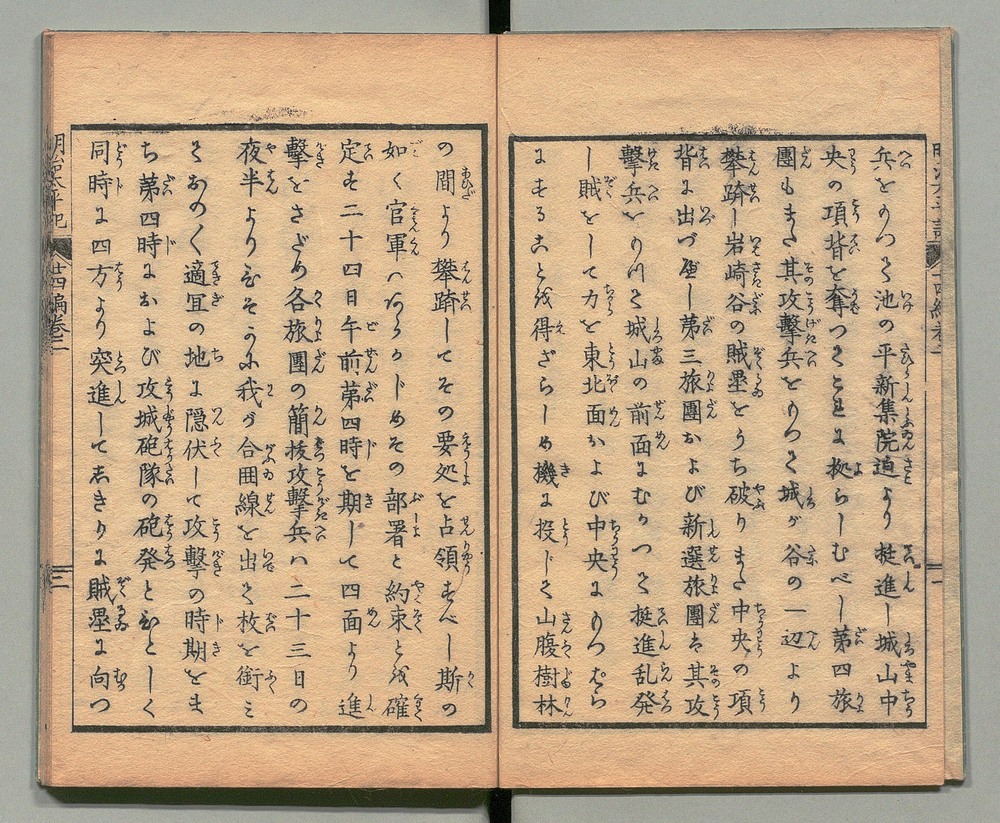 兵をもつて池の平新集院迫より挺進し城山中
央の項背を奪つてこれに拠らしむべし第四旅
團もまた其攻擊兵をもつて城が谷の一辺より
攀躋し岩崎谷の賊壘をうち破りまた中央の項
背に出づべし第三旅團および新選旅團は其攻
擊兵をもつて城山の前面にむかつて挺進乱発
し賊をして力を東北面および中央にもつぱら
にすることを得ざらしめ機に投じて山腹樹林
の間より攀躋してその要処を占領すべし斯の
如く官軍はあらかじめその部署と約束とを確
定す二十四日午前第四時を期して四面より進
擊をさだめ各旅團の簡抜攻擊兵は二十三日の
夜半よりひそかに我が合囲線を出て枚を銜み
ておの〱適宜の地に隠伏して攻擊の時期をま
ち第四時におよび攻城砲隊の砲発とひとしく
同時に四方より突進してしきりに賊壘に向つ
明治太平記 廿四編巻二 三